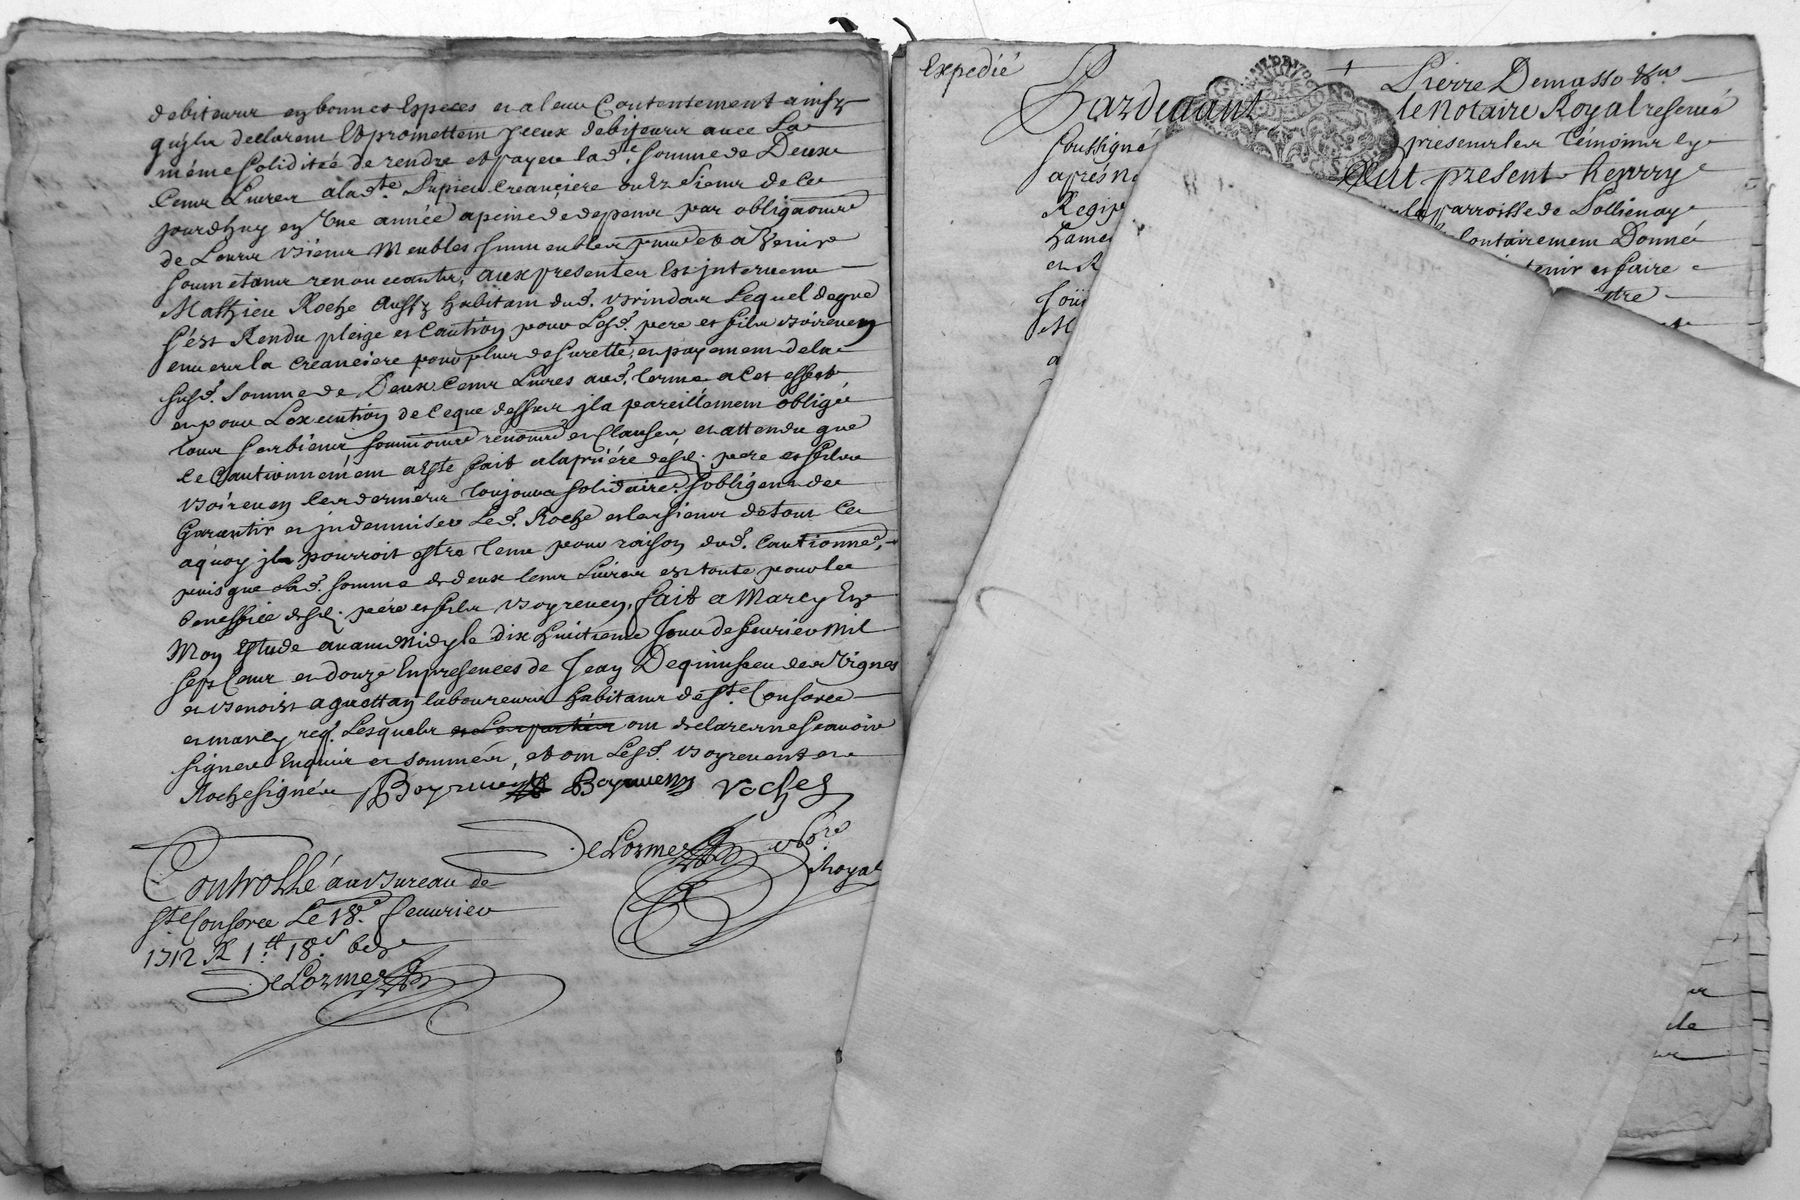 debiteurs en bonnes Especes et a leur Contentement ainsy
qu'jls declarent Et promettent jceux debiteurs avec La
même soliditée de rendre et payer lad.te somme de Deux
Cents Livres a lad.te Lupieu Creanciere ou Ez siens de Ce
jourdhuy en Une année a peine de depens par obligaõns
de Leurs biens Meubles jmmeubles pnts et a Venir
soumetans renonceants, aux presentes Est jntervenu
Mathieu Roche Aussy habitant dud. brindas Lequel de gré
s'est Rendu pleige et Caution pour Lesd. pere et fils boireven
envers la Creanciere pour plus de surette, et payement de la
susd. somme de Deux Cents Livres aud. terme a Cet effect
et pour L'execution de Ceque dessus jl a pareillement obligé
tous ses biens soumissions renonc. et Clauses et attendu que
le Cautionnement a Esté fait a la priére desd. pere et fils
boireven Ces derniers toujours solidaires s'obligent de
Garantir et jndemniser Led. Roche et les siens de tout Ce
aquoy jls pourroit estre tenu pour raison dud. Cautionne.,
puis que lad. somme de deux Cents Livres est toute pour le
beneffice desd. pére et fils boyreven, fait a Marcy En
Mon Estude avant Midy le dix huitieme Jour de fevrier Mil
sept Cents et douze En presences de Jean Dequinsieu des Vignes
et benoist aguettan laboureurs habitants de S.te Consorce
et marcy req. Lesquels et Les parties ont declaré ne scavoir
signer Enquis et sommés, et ont Lesd. boyrevent et
Roche signés Boyrven Boyrven rochel
DeLorme No.re
Royal
Controllé au bureau de
S.te Consorce Le 18.e fevrier
1712 R 1.tt 18.s
DeLorme
Expedié
Pardevant
Pierre Demasso
le Notaire Royal reservé
soussigné
presents les témoins
après
fut présent henrry
Regip
la parroisse de Pollienay
lontairement Donné
et R
tenir et faire
Joüi